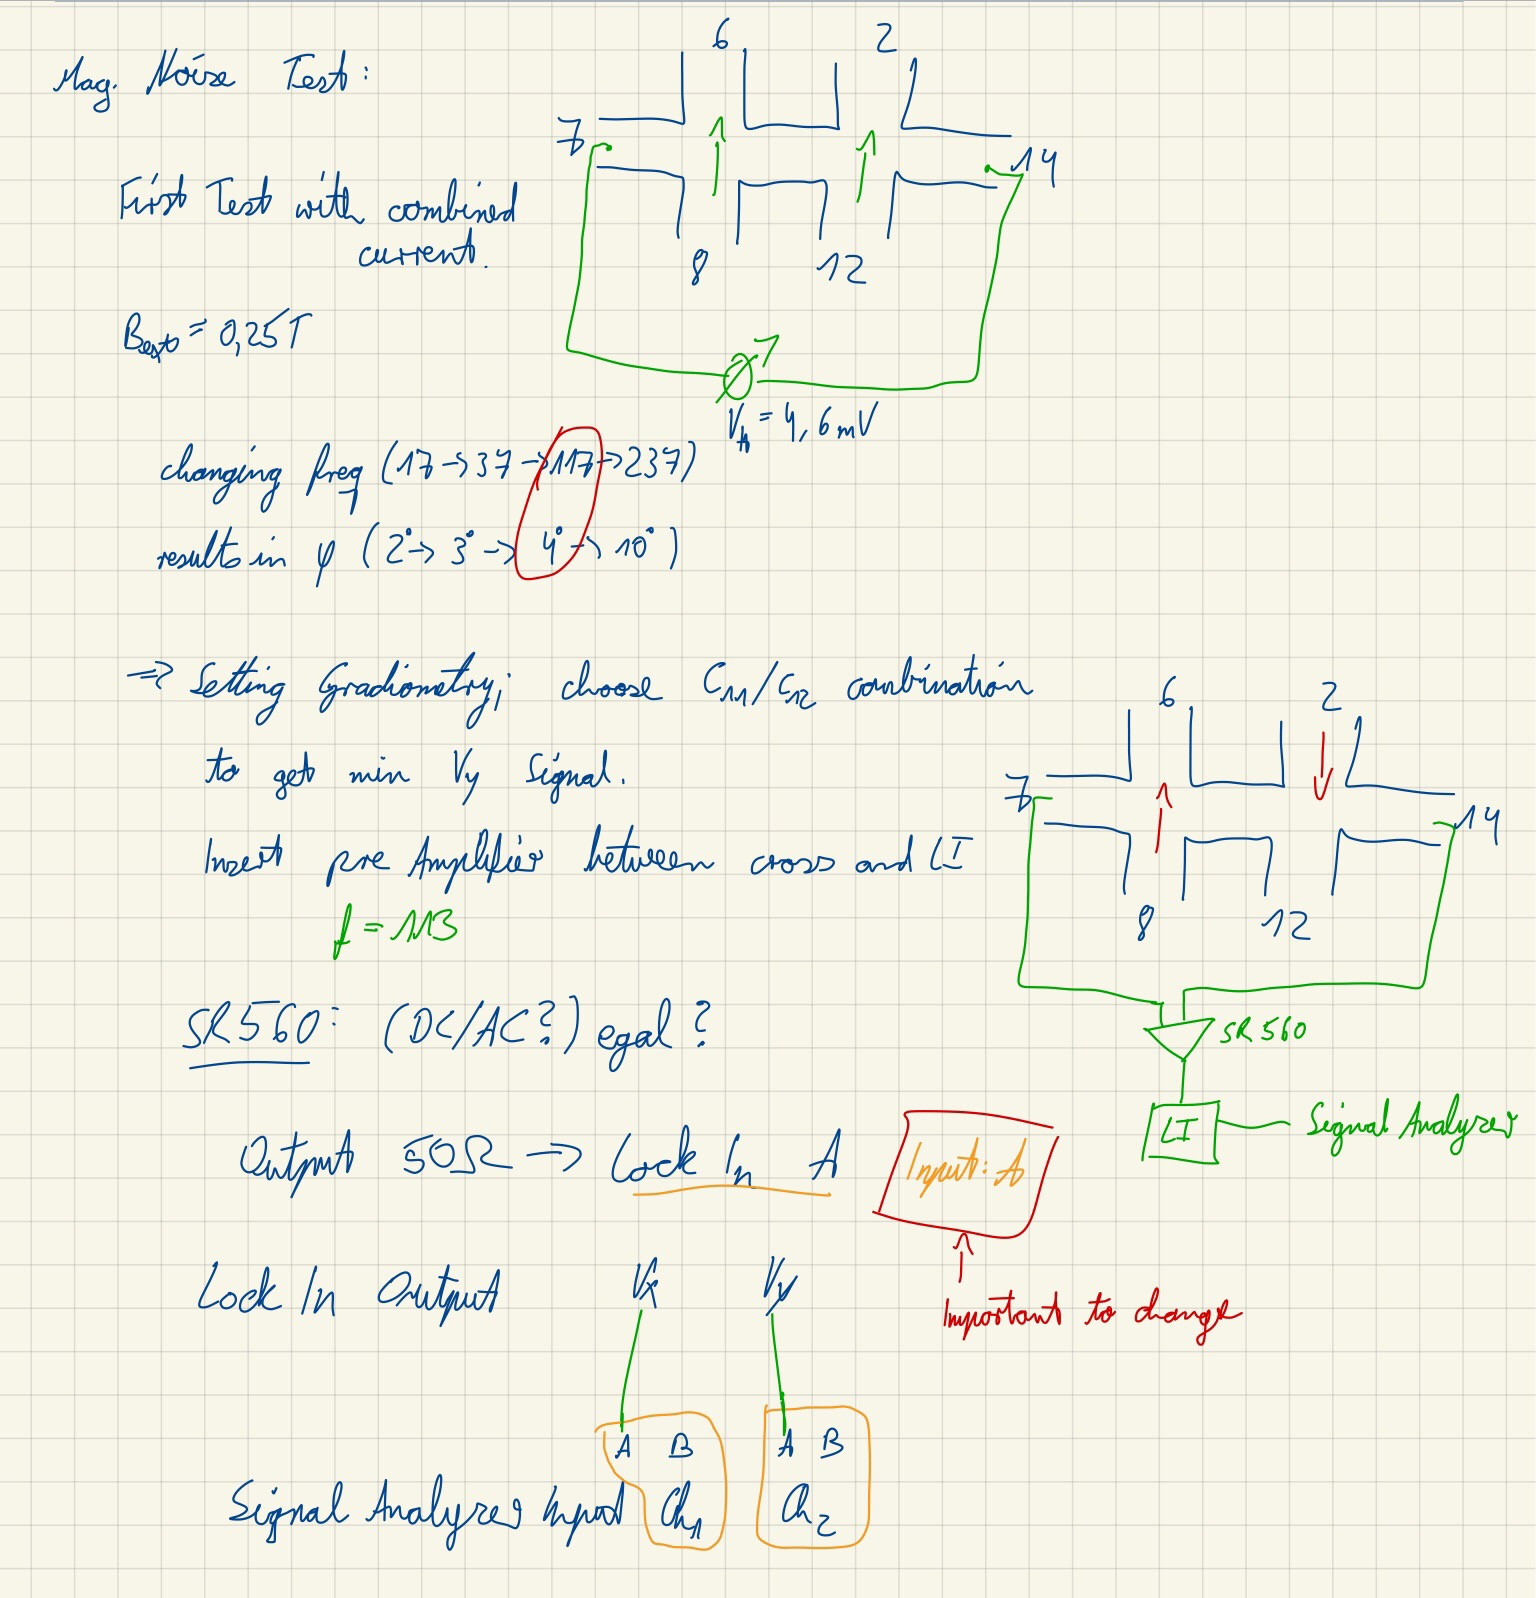 Mag. Noise Test:
6 2
7 14
8 12
First Test with combined
current.
Bext = 0,25T
VH = 4,6mV
changing freq (17 -> 37 -> 117 -> 237)
results in φ (2° -> 3° -> 4° -> 10°)
=> Setting Gradiometry; choose C11/C12 combination
to get min Vy Signal.
Insert pre Amplifier between cross and LI
f = 113
6 2
7 14
8 12
SR560
LI Signal Analyzer
SR560: (DC/AC?) egal?
Output 50Ω -> Lock In A
Input: A
Important to change
Lock In Output Vx Vy
A B A B
Signal Analyzer Input Ch1 Ch2